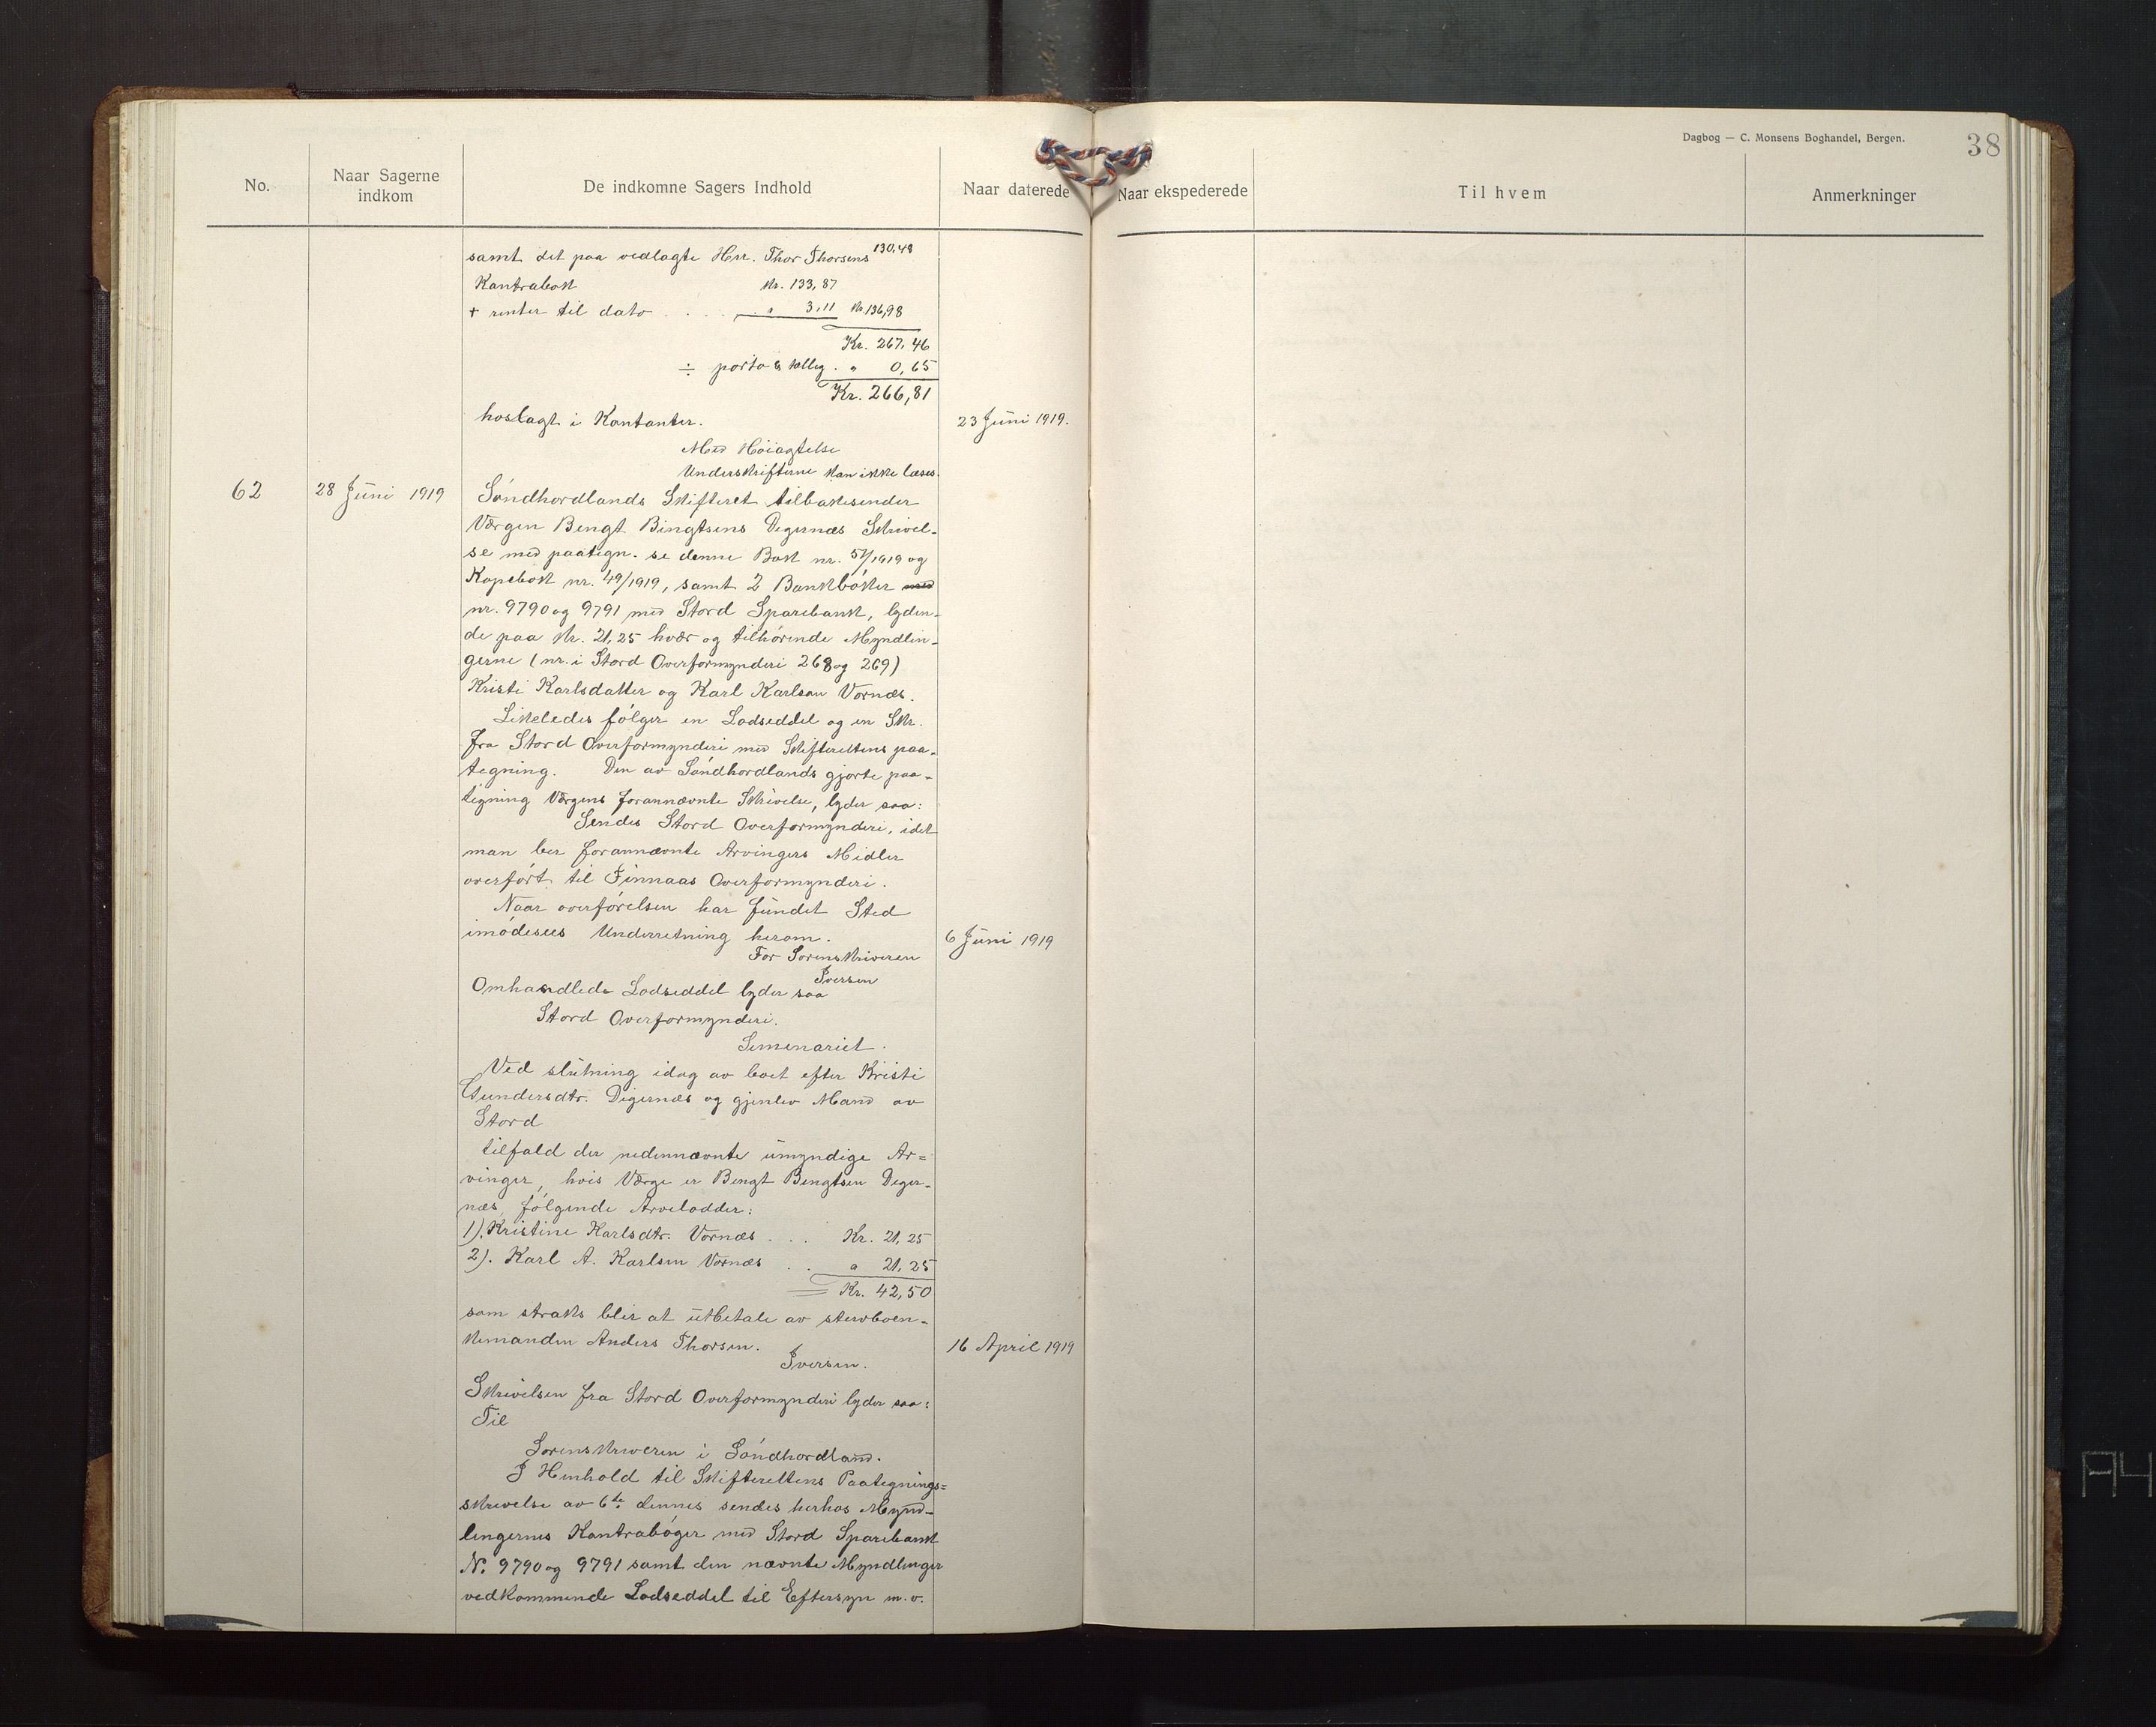 Dagbog — C. Monsens Boghandel, Bergen.
38
No.
Naar Sagerne indkom
De indkomne Sagers Indhold
Naar daterede
Naar ekspederede
Til hvem
Anmerkninger
samt det paa vedlagte Hrr. Thor Thorsens 130,48
Kontrabok Kr. 133,87
+ renter til dato . . . . " 3,11 Kr. 136,98
Kr. 267,46
÷ porto & tillæg . " 0,65
Kr. 266,81
hoslagt i Kontanter. 23 Juni 1919.
Med Høiagtelse
Underskrifterne kan ikke læses.
62 28 Juni 1919 Søndhordlands Skifteret tilbakesender
Værgen Bengt Bingtsens Degernæs Skrivel-
se med paategn. se denne Bok nr. 57/1919 og
Kopebok nr. 49/1919, samt 2 Bankbøker med
nr. 9790 og 9791 med Stord Sparebank, lyden-
de paa Kr. 21,25 hvær og tilhørende Myndlin-
gerne (nr. i Stord Overformynderi 268 og 269)
Kristi Karlsdatter og Karl Karlson Vornæs.
Likeledes følger en Lodseddel og en Skr.
fra Stord Overformynderi med Skifterettens paa-
tegning. Den av Søndhordlands gjorte paa-
tegning Værgens forannævnte Skrivelse, lyder saa:
Sendes Stord Overformynderi, idet
man ber forannævnte Arvingers Midler
overført til Finnaas Overformynderi.
Naar overførelsen har fundet Sted
imødesees Underretning herom. 6 Juni 1919
For Sorenskriveren
Iversen
Omhandlede Lodseddel lyder saa
Stord Overformynderi.
Semenariet.
Ved slutning idag av boet efter Kristi
Gundersdtr. Digernæs og gjenlev Mand av
Stord
tilfald der nedennævnte umyndige Ar=
vinger, hvis Værge er Bengt Bengtsen Deger-
næs, følgende Arvelodder:
1). Kristine Karlsdtr. Vornæs . . . Kr. 21,25
2). Karl A. Karlsen Vornæs . . " 21,25
Kr. 42,50
som straks blir at utbetale av stervboen-
kemanden Anders Thorsen. 16 April 1919
Iversen.
Skrivelsen fra Stord Overformynderi lyder saa:
Til
Sorenskriveren i Søndhordland.
I Henhold til Skifterettens Paategnings=
skrivelse av 6te dennes sendes herhos Mynd-
lingernes Kontrabøger med Stord Sparebank
N. 9790 og 9791 samt den nævnte Myndlinger
vedkommende Lodseddel til Eftersyn m.v.